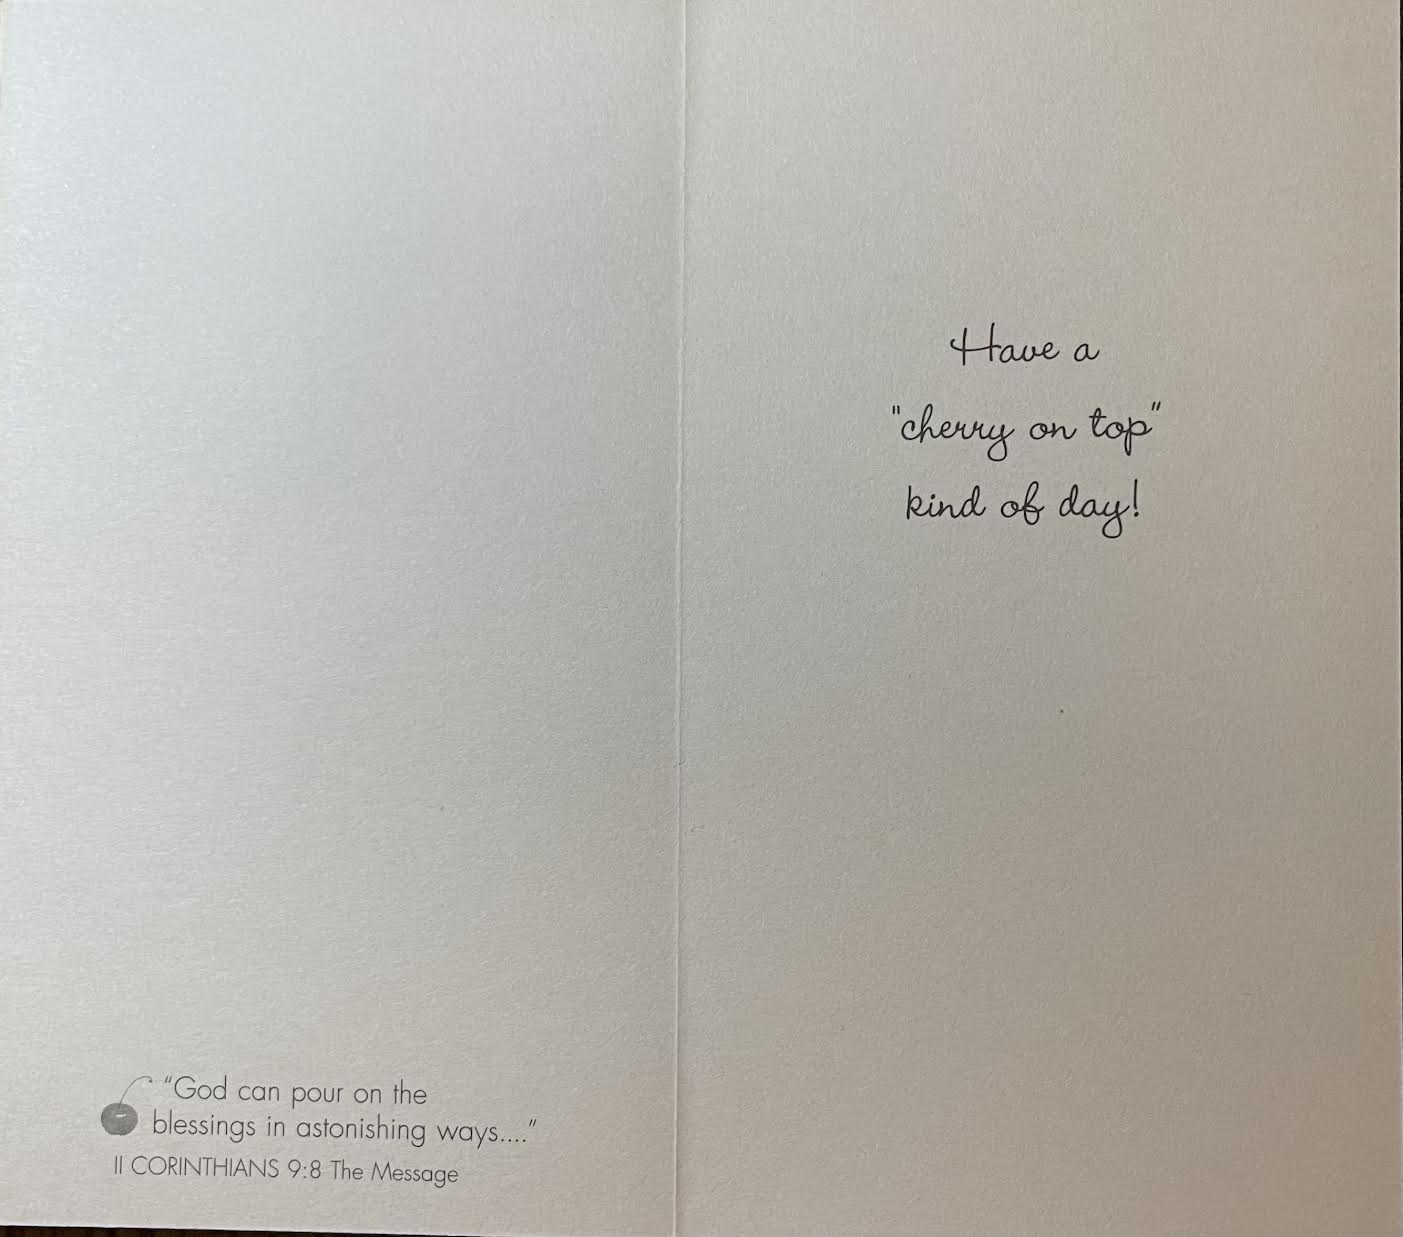 "God can pour on the
blessings in astonishing ways...."
II CORINTHIANS 9:8 The Message
Have a
"cherry on top"
kind of day!